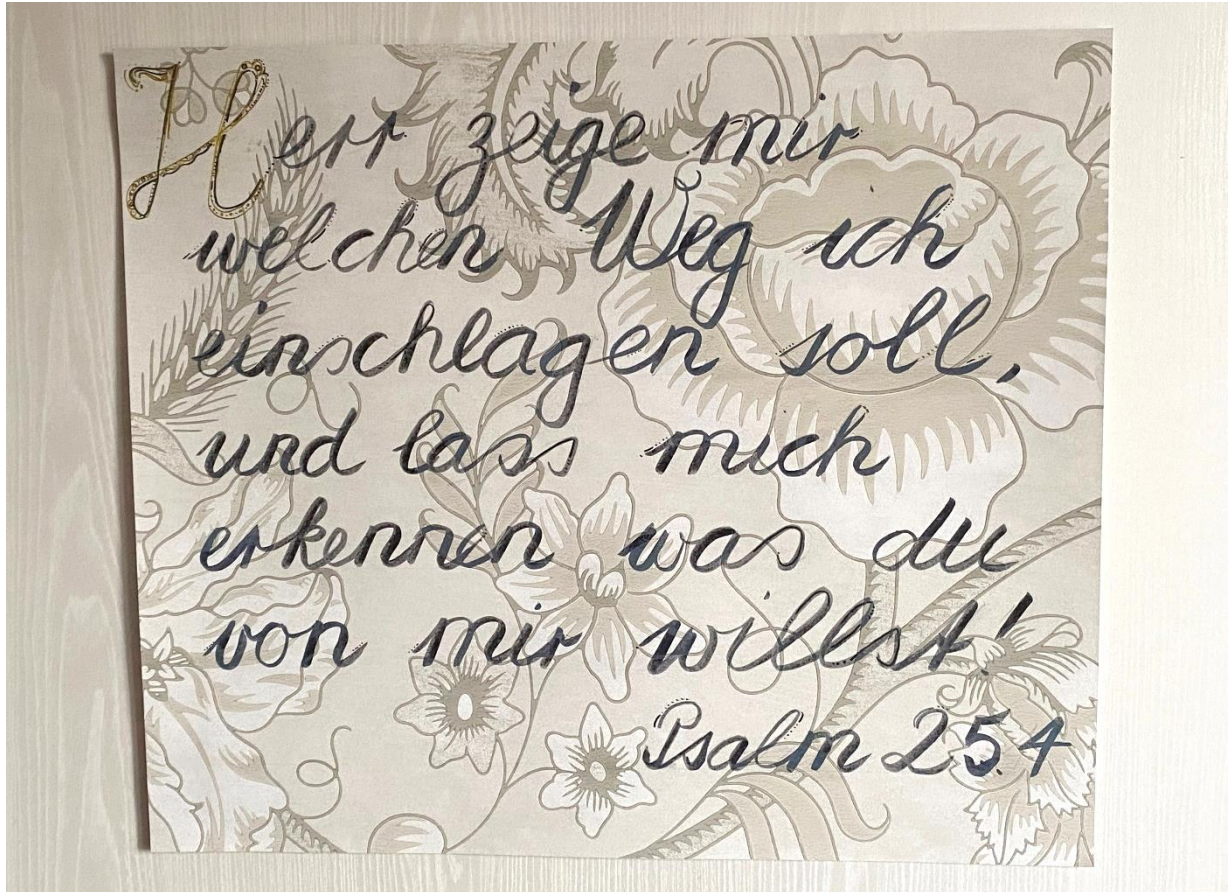 Herr zeige mir
welchen Weg ich
einschlagen soll,
und lass mich
erkennen was du
von mir willst!
Psalm 25.4